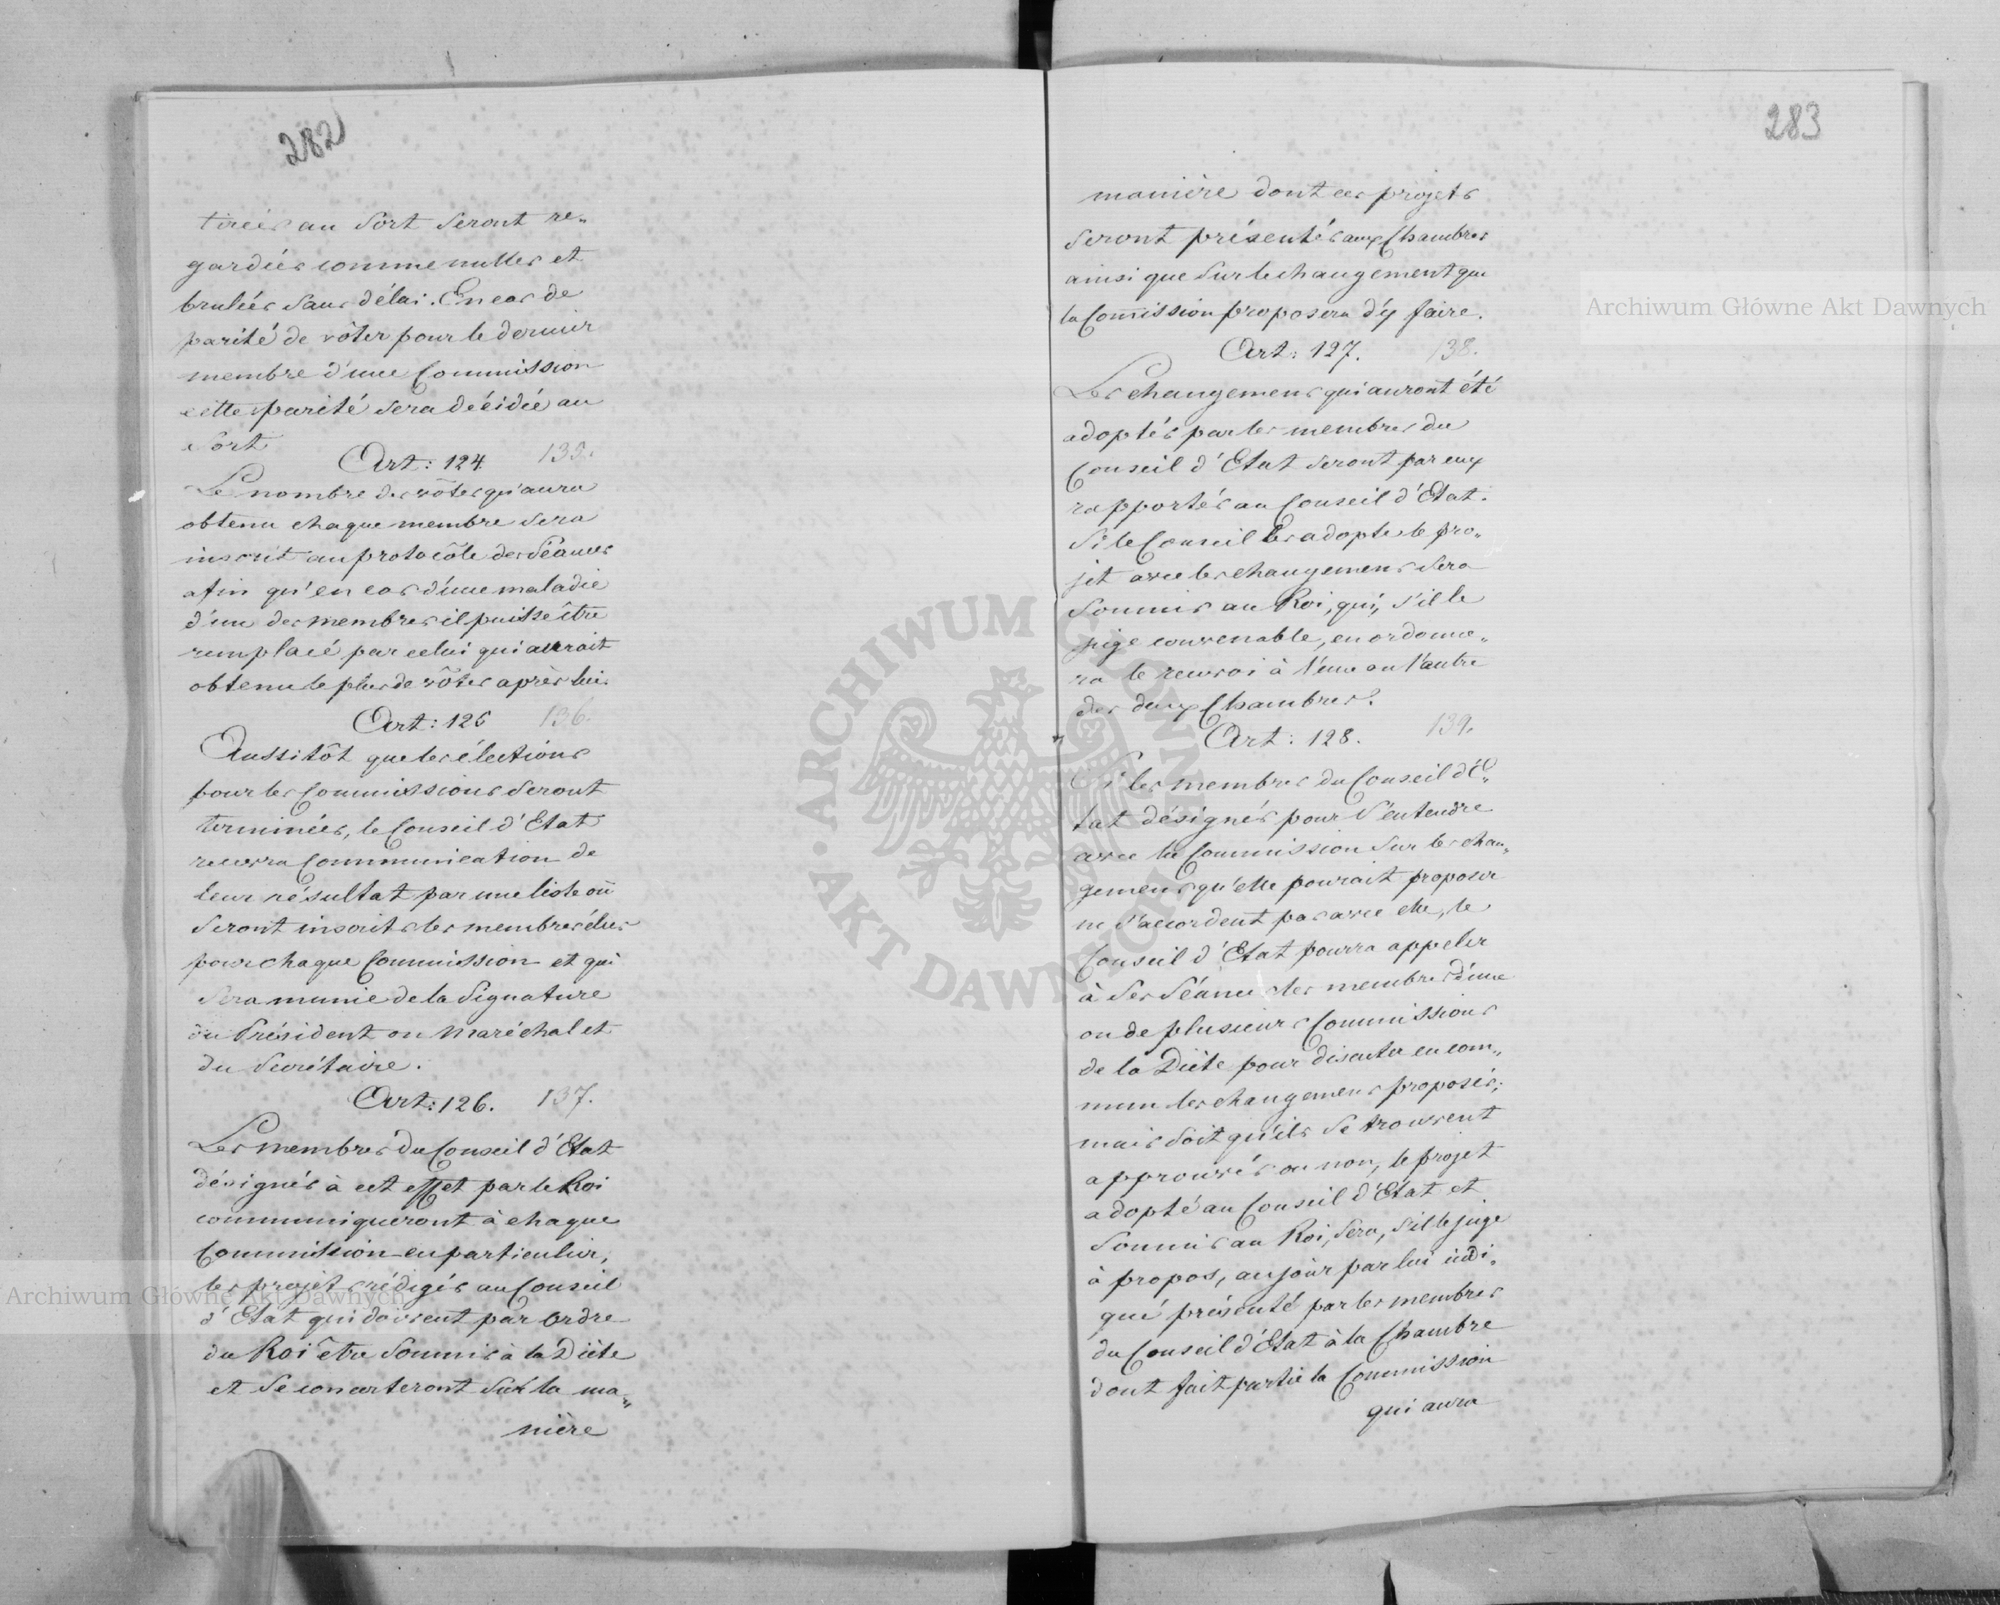 282
tirées au sort seront re„
gardées comme nulles et
brulées sans délai. En cas de
parité de vôtes pour le dernier
membre d'une Commission
cette parité sera décidée au
sort
Art: 124. 135.
Le nombre des vôtes qu'aura
obtenu chaque membre sera
inscrit au protocôle des Séances
afin qu'en cas d'une maladie
d'un des membres il puisse être
remplacé par celui qui aurait
obtenu le plus de vôtes après lui.
Art: 125 136.
Aussitôt que les élections
pour les Commissions seront
terminées, le Conseil d'Etat
recevra communication de
leur résultat par une liste où
seront inscrits les membres élus
pour chaque Commission et qui
sera munie de la Signature
du Président ou Maréchal et
du Secrétaire.
Art: 126. 137.
Les membres du Conseil d'Etat
désignés à cet effet par le Roi
communiqueront à chaque
Commission en particulier,
les projets rédigés au Conseil
d'Etat qui doivent par ordre
du Roi être soumis à la Diète
et se concerteront sur la ma„
nière
283
manière dont ces projets
seront présentés aux Chambres
ainsi que sur le changement que
la Com̅ission proposera d'y faire.
Art: 127. 138.
Les changemens qui auront été
adoptés par les membres du
Conseil d'Etat seront par eux
rapportés au Conseil d'Etat.
Si le Conseil les adopte le pro„
jet avec les changemens sera
soumis au Roi, qui, s'il le
juge convenable, en ordonne„
ra le renvoi à l'une ou l'autre
des deux Chambres.
Art: 128. 139.
Si les membres du Conseil d'E„
tat désignés pour s'entendre
avec la Commission sur les chan„
gemens qu'elle pourait proposer
ne s'accordent pas avec elle, le
Conseil d'Etat pourra appeler
à ses Séances les membres d'une
ou de plusieurs Commissions
de la Diète pour discuter en com„
mun les changemens proposés;
mais soit qu'ils se trouvent
approuvés ou non, le projet
adopté au Conseil d'Etat et
soumis au Roi, sera, s'il le juge
à propos, au jour par lui indi„
qué présenté par les membres
du Conseil d'Etat à la Chambre
dont fait partie la Commission
qui aura
Archiwum Główne Akt Dawnych
Archiwum Główne Akt Dawnych
ARCHIWUM GŁÓWNE AKT DAWNYCH